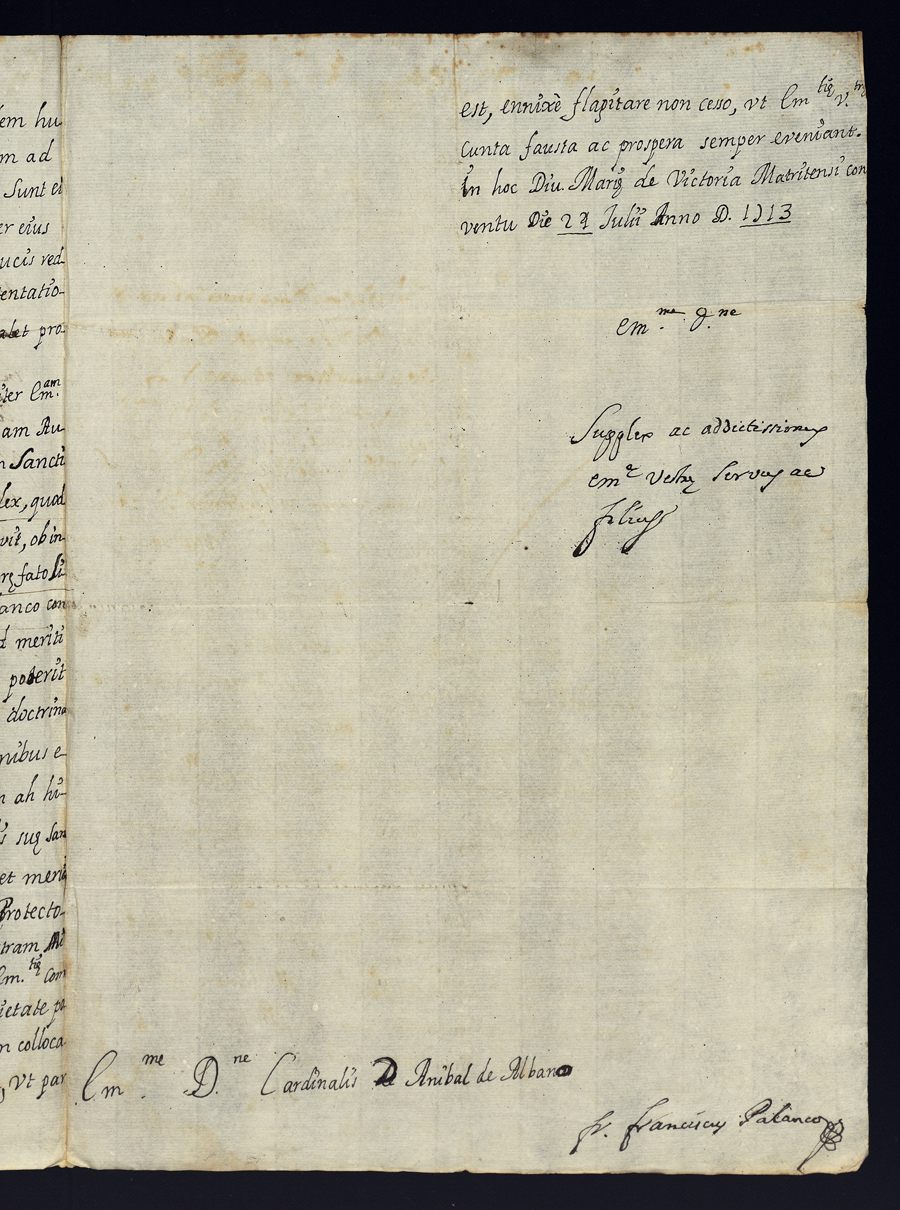 em hu
m ad
Sunt ei
er eius
ucis red
tentatio-
alet pro-
iter Em.am
am Au-
n Sancti
lex, quod
vit, ob in
rę fato li-
anco con
d meriti
poterit
doctrina
nibus e-
n ah hu-
is suę San
et meri
Protecto-
tram Mi
Em.tię com
ietate pa
n colloca
, Vt par
est, ennixè flagitare non ceso, vt Em tię V.trę
Cunta fausta ac prospera semper eveniant.
In hoc Diu. Marię de Victoria Matritensi con
ventu Die 29 Iulii Anno D. 1713
Em.me D.ne
Supplex ac addictissimus
Em.ę Vestrę Servus ac
filius
Em.me D.ne Cardinalis D Anibal de Albano
fr. franciscus Palanco